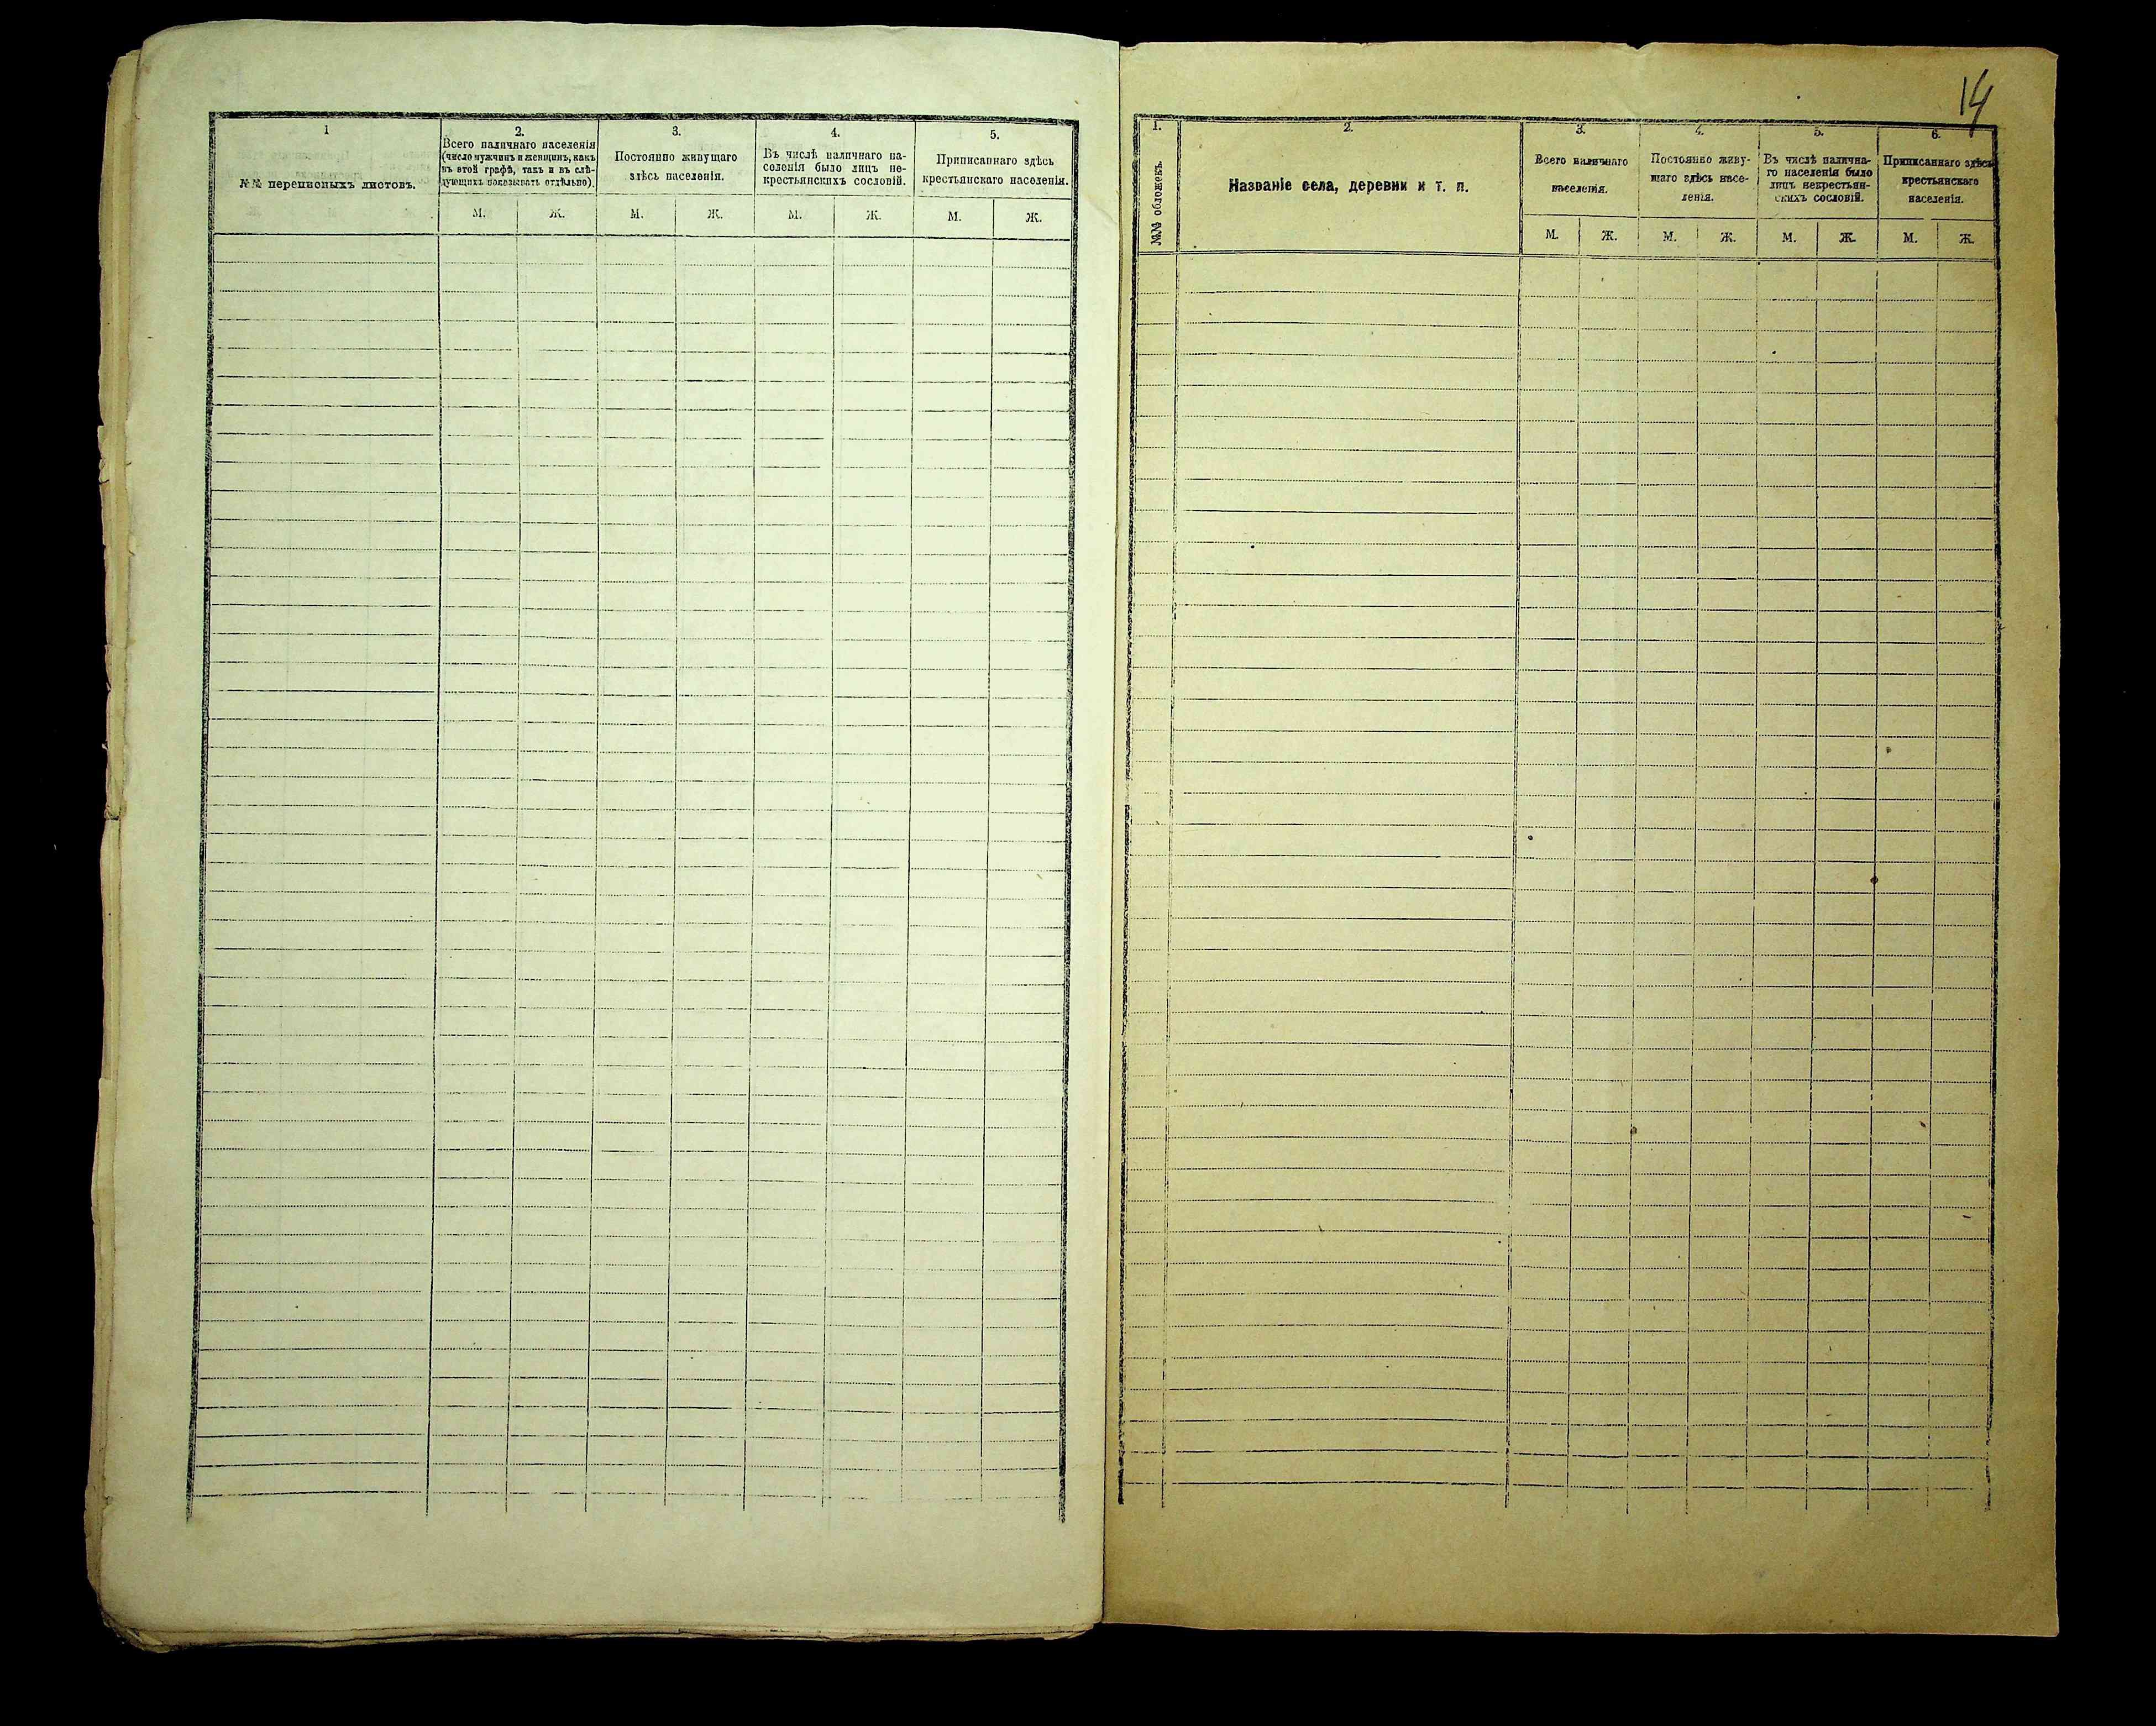 1
№№ переписныхъ листовъ.
2.
Всего наличнаго населенія
(число мужчинъ и женщинъ, какъ
въ этой графѣ, такъ и въ слѣ-
дующихъ показывать отдѣльно).
М. Ж.
3.
Постоянно живущаго
здѣсь населенія.
М. Ж.
4.
Въ числѣ наличнаго на-
селенія было лицъ не-
крестьянскихъ сословій.
М. Ж.
5.
Приписаннаго здѣсь
крестьянскаго населенія.
М. Ж.
14
1.
№№ обложекъ
2.
Названіе села, деревни и т. п.
3.
Всего наличнаго
населенія.
М. Ж.
4.
Постоянно живу-
щаго здѣсь насе-
ленія.
М. Ж.
5.
Въ числѣ налична-
го населенія было
лицъ некрестьян-
скихъ сословій.
М. Ж.
6.
Приписаннаго здѣсь
крестьянскаго
населенія.
М. Ж.